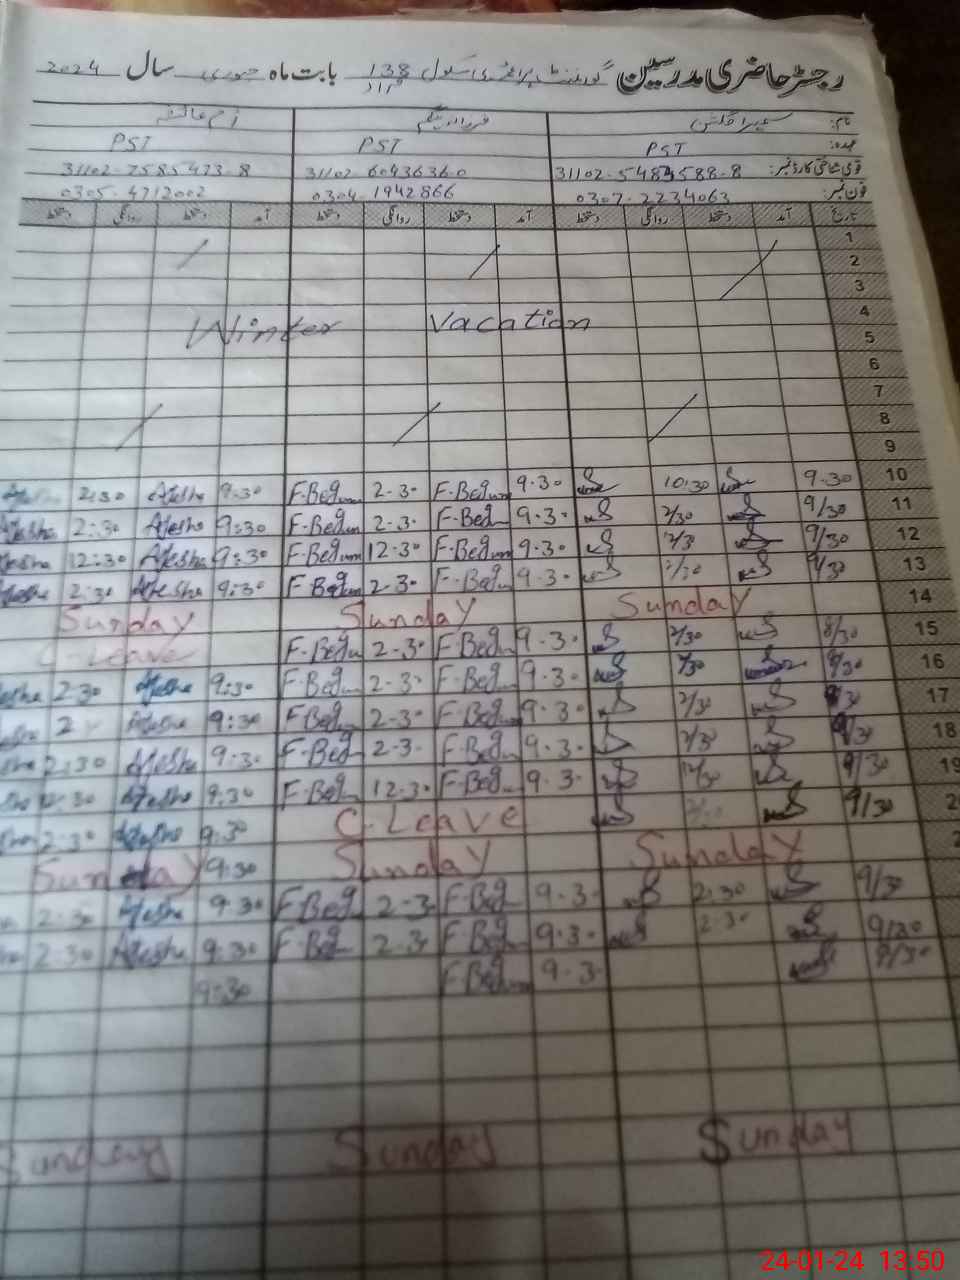 رجسٹر حاضری مدرسین گورنمنٹ پرائمری سکول 138 مراد بابت ماہ جنوری سال 2024
نام:
عہدہ: PST PST PST
قومی شناختی کارڈ نمبر: 31102-5483588-8 31102-6043636-0 31102-7585473-8
فون نمبر: 0307-2234063 0304-1942866 0305-4712002
تاریخ آمد دستخط روانگی دستخط آمد دستخط روانگی دستخط آمد دستخط روانگی دستخط
1
2
3
4
Winter Vacation
5
6
7
8
9
10 9.30 10/30 9.30 F-Begum 2-30 F-Begum 9:30 Ayesha 2:30
11 9/30 2/30 9.30 F-Begum 2-3. F-Begum 9:30 Ayesha 2:30 Ayesha
12 9/30 12/30 9.30 F-Begum 12-30 F-Begum 9:30 Ayesha 12:30
13 9/30 2/30 9.30 F-Begum 2-30 F-Begum 9:30 Ayesha 2:30
14 Sunday Sunday Sunday
15 8/30 2/30 9.30 F-Begum 2-30 F-Begum C Leave
16 9/30 2/30 9.30 F-Begum 2-30 F-Begum 9:30 Ayesha 2:30
17 2/30 9.30 F-Begum 2-30 F-Begum 9:30 Ayesha
18 2/30 9.3. F-Begum 2-3. F-Begum 9:30 Ayesha 2:30
19 9/30 12/30 9.3. F-Begum 12-30 F-Begum 9:30 Ayesha
9/30 C-Leave 9:30 Ayesha 2:30
Sunday Sunday 9:30 Sunday
9/30 2:30 9.3. F-Begum 2-3. F-Begum 9:30 Ayesha 2:30
9/30 2:30 9.3. F-Begum 2-3. F-Begum 9:30 Ayesha 2:30
9/30 9.3. F-Begum 9:30
Sunday Sunday Sunday
24-01-24 13:50